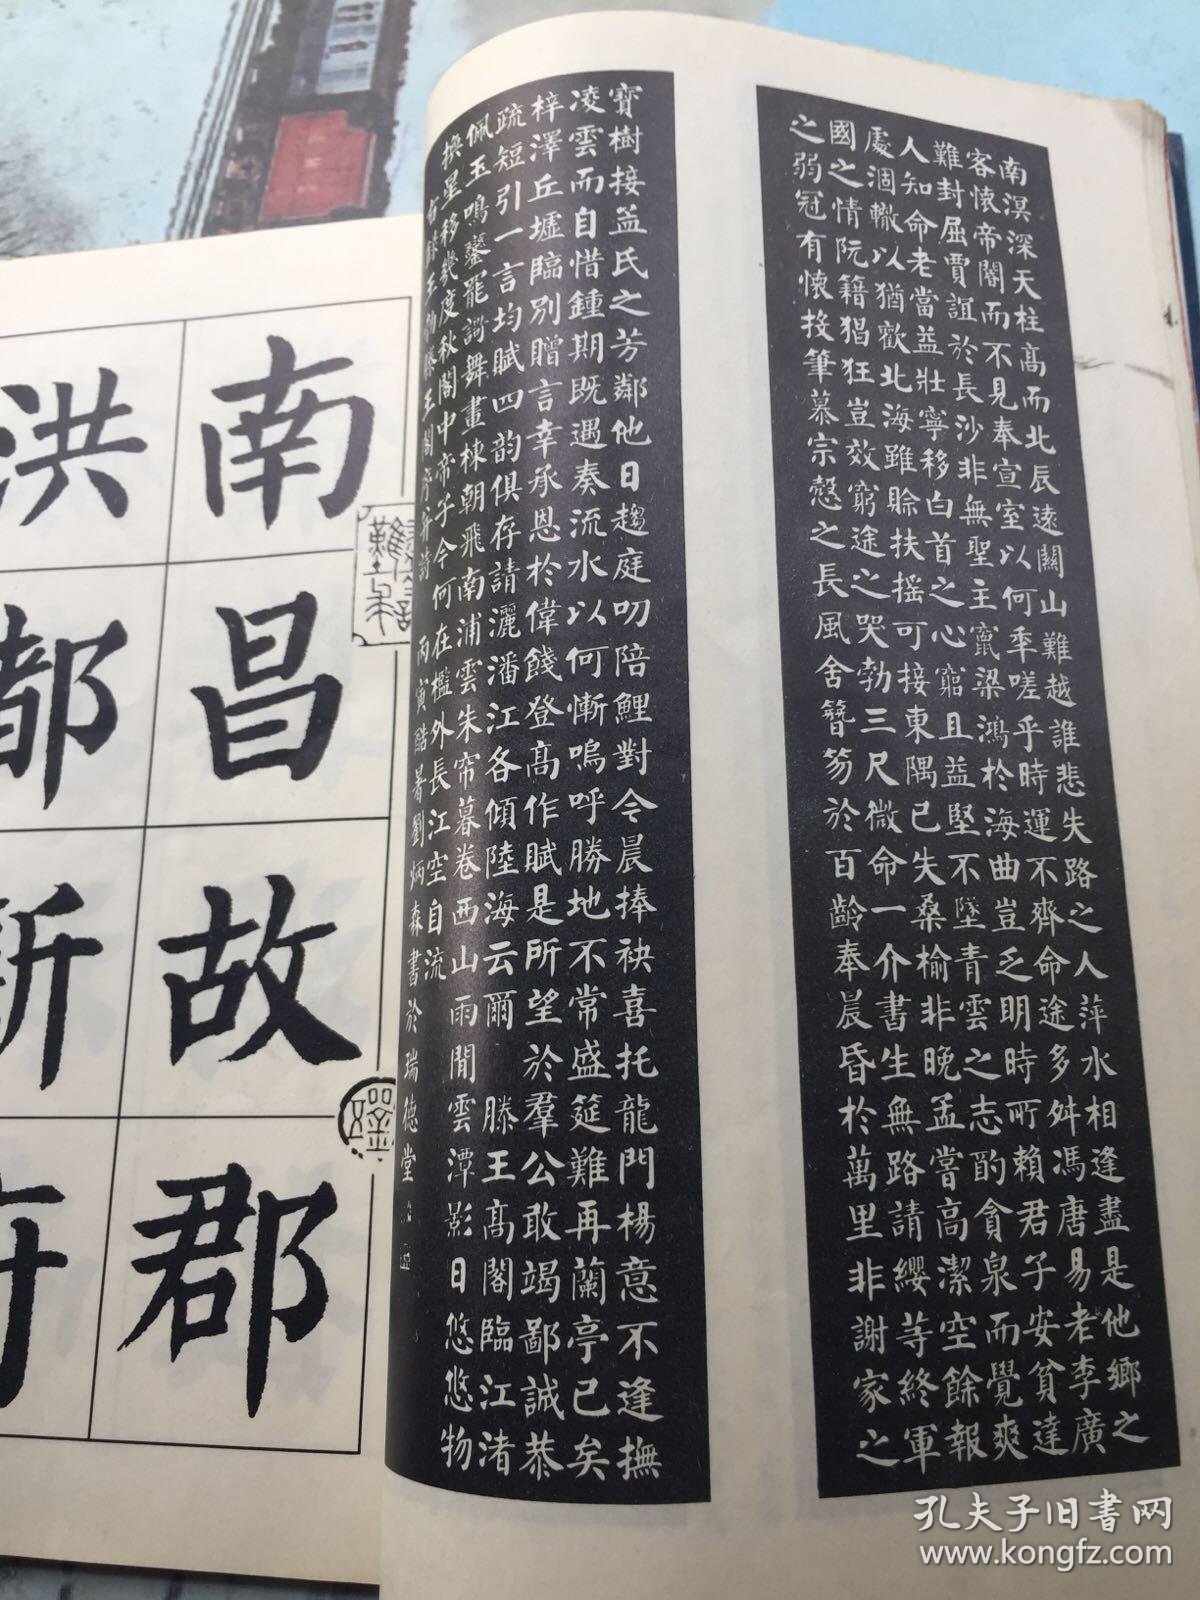 南溟深天柱高而北辰遠關山難越誰悲失路之人萍水相逢盡是他鄉之
客懷帝閽而不見奉宣室以何年嗟乎時運不齊命途多舛馮唐易老李廣
難封屈賈誼於長沙非無聖主竄梁鴻於海曲豈乏明時所賴君子安貧達
人知命老當益壯寧移白首之心窮且益堅不墜青雲之志酌貪泉而覺爽
處涸轍以猶歡北海雖賒扶搖可接東隅已失桑榆非晚孟嘗高潔空餘報
國之情阮籍猖狂豈效窮途之哭勃三尺微命一介書生無路請纓等終軍
之弱冠有懷投筆慕宗慤之長風舍簪笏於百齡奉晨昏於萬里非謝家之
寶樹接孟氏之芳鄰他日趨庭叨陪鯉對今晨捧袂喜托龍門楊意不逢撫
凌雲而自惜鍾期既遇奏流水以何慚嗚呼勝地不常盛筵難再蘭亭已矣
梓澤丘墟臨別贈言幸承恩於偉餞登高作賦是所望於羣公敢竭鄙誠恭
疏短引一言均賦四韵俱存請灑潘江各傾陸海云爾 滕王高閣臨江渚
佩玉鳴鑾罷謌舞畫棟朝飛南浦雲朱帘暮卷西山雨閒雲潭影日悠悠物
换星移幾度秋閣中帝子今何在檻外長江空自流
右録王勃滕王閣序并詩 丙寅酷暑劉炳森書於瑞德堂
南昌故郡
洪都新府
孔夫子旧書网
www.kongfz.com